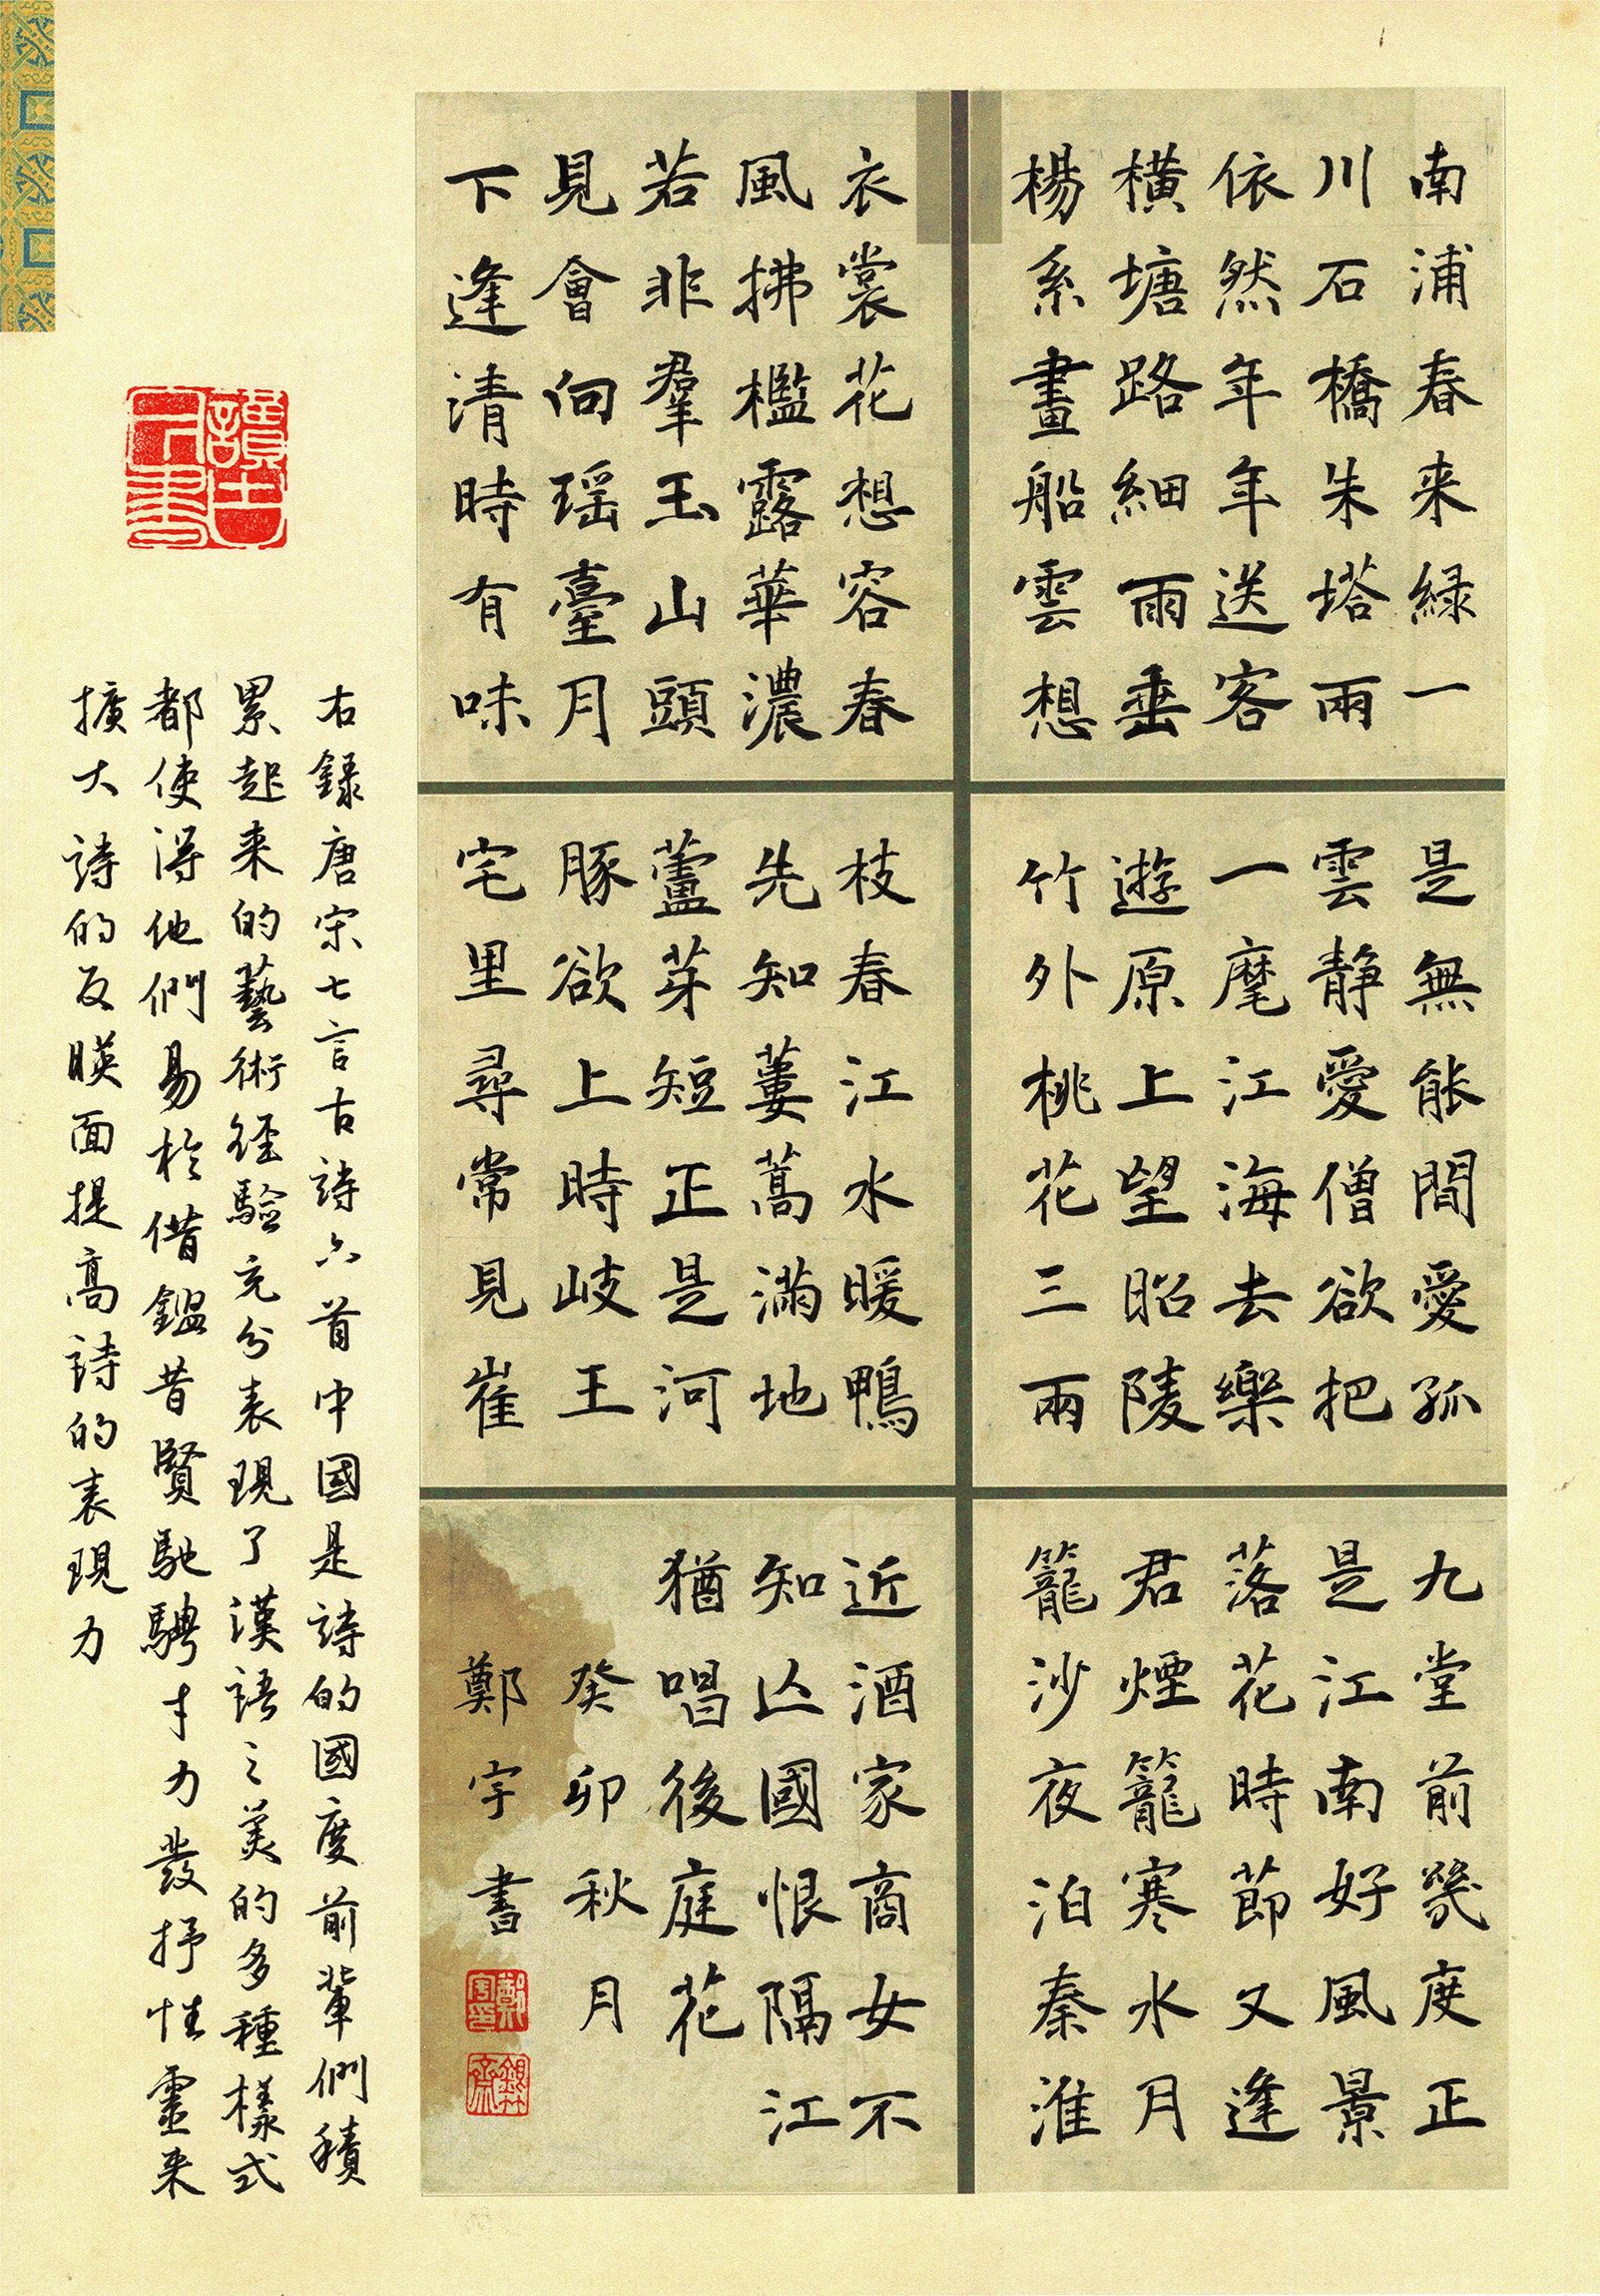 南浦春来緑一
川石橋朱塔雨
依然年年送客
横塘路細雨垂
楊系畫船雲想
衣裳花想容春
風拂檻露華濃
若非羣玉山頭
見會向瑶臺月
下逢清時有味
是無能閒愛孤
雲静愛僧欲把
一麾江海去樂
遊原上望昭陵
竹外桃花三兩
枝春江水暖鴨
先知蔞蒿滿地
蘆芽短正是河
豚欲上時岐王
宅里尋常見崔
九堂前幾度正
是江南好風景
落花時節又逢
君煙籠寒水月
籠沙夜泊秦淮
近酒家商女不
知亾國恨隔江
猶唱後庭花
癸卯秋月
鄭宇書
鄭宇印
右録唐宋七言古詩六首中國是詩的國度前輩們積
累起来的藝術經驗充分表現了漢語之美的多種樣式
都使得他們易於借鑑昔賢馳騁才力發抒性靈来
擴大詩的反映面提高詩的表現力